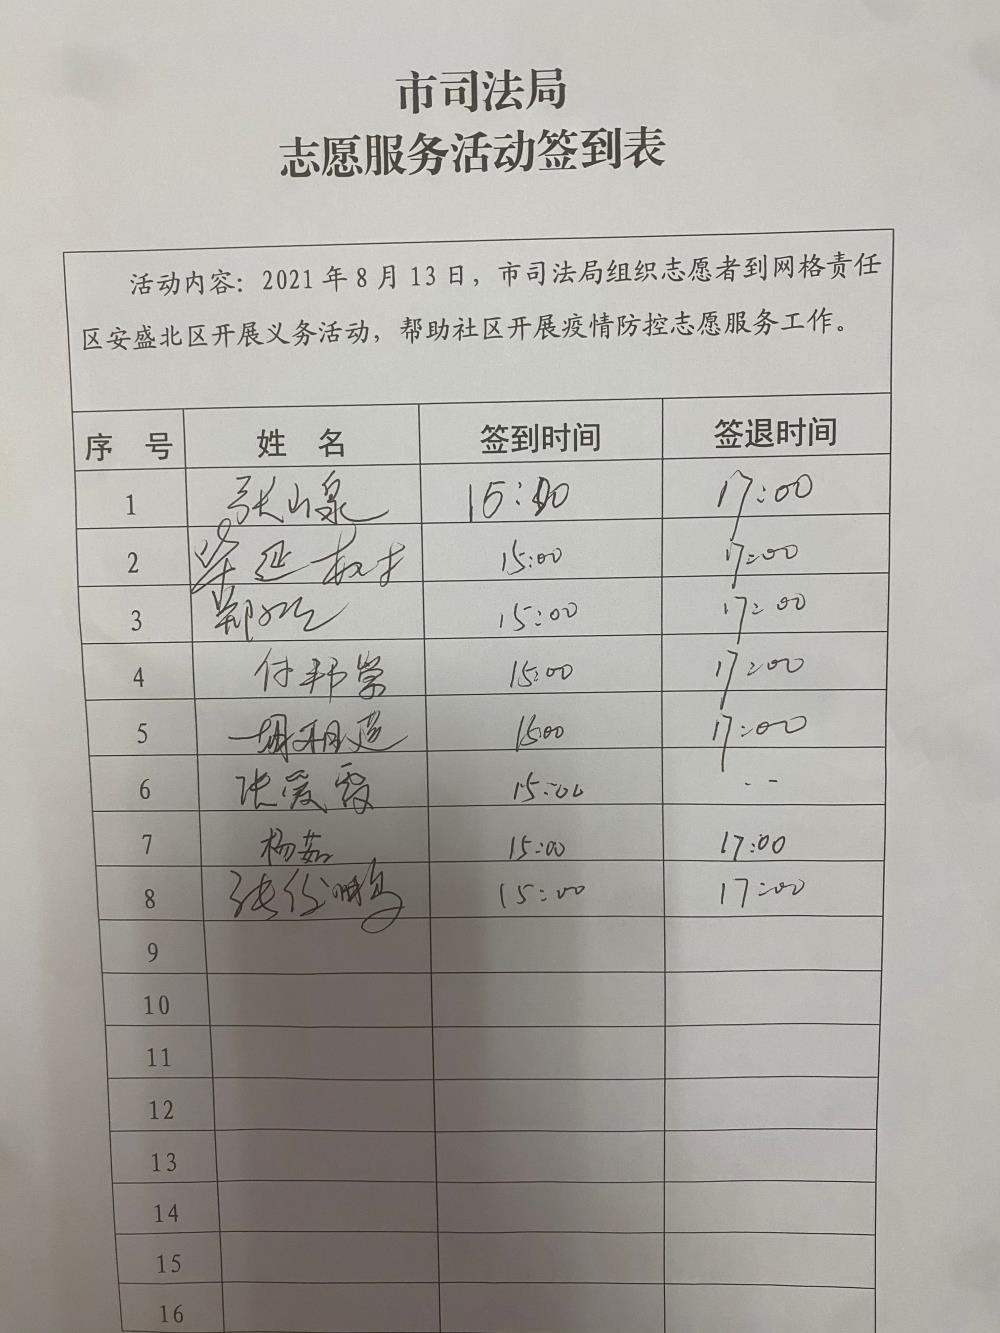 市司法局
志愿服务活动签到表
活动内容：2021年8月13日，市司法局组织志愿者到网格责任
区安盛北区开展义务活动，帮助社区开展疫情防控志愿服务工作。
序 号 姓 名 签到时间 签退时间
1 张山泉 17:00
2 15:00 17:00
3 15:00 17:00
4 付邦常 15:00 17:00
5 1500 17:00
6 张爱霞 15:00 --
7 杨茹 15:00 17:00
8 15:00 17:00
9
10
11
12
13
14
15
16